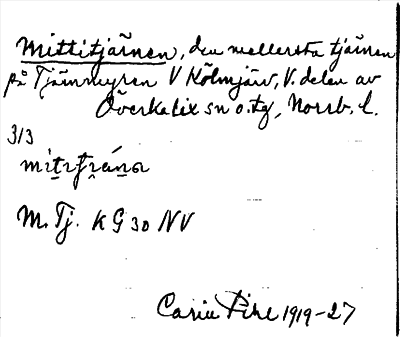 Mittitjärnen, den mellersta tjärnen
på Tjärnmyren V Kölmjärv, V. delen av
Överkalix sn o. tg, Norrb. l.
3/3
M. Tj. KG 30 NV
Carin Pihl 1919-27